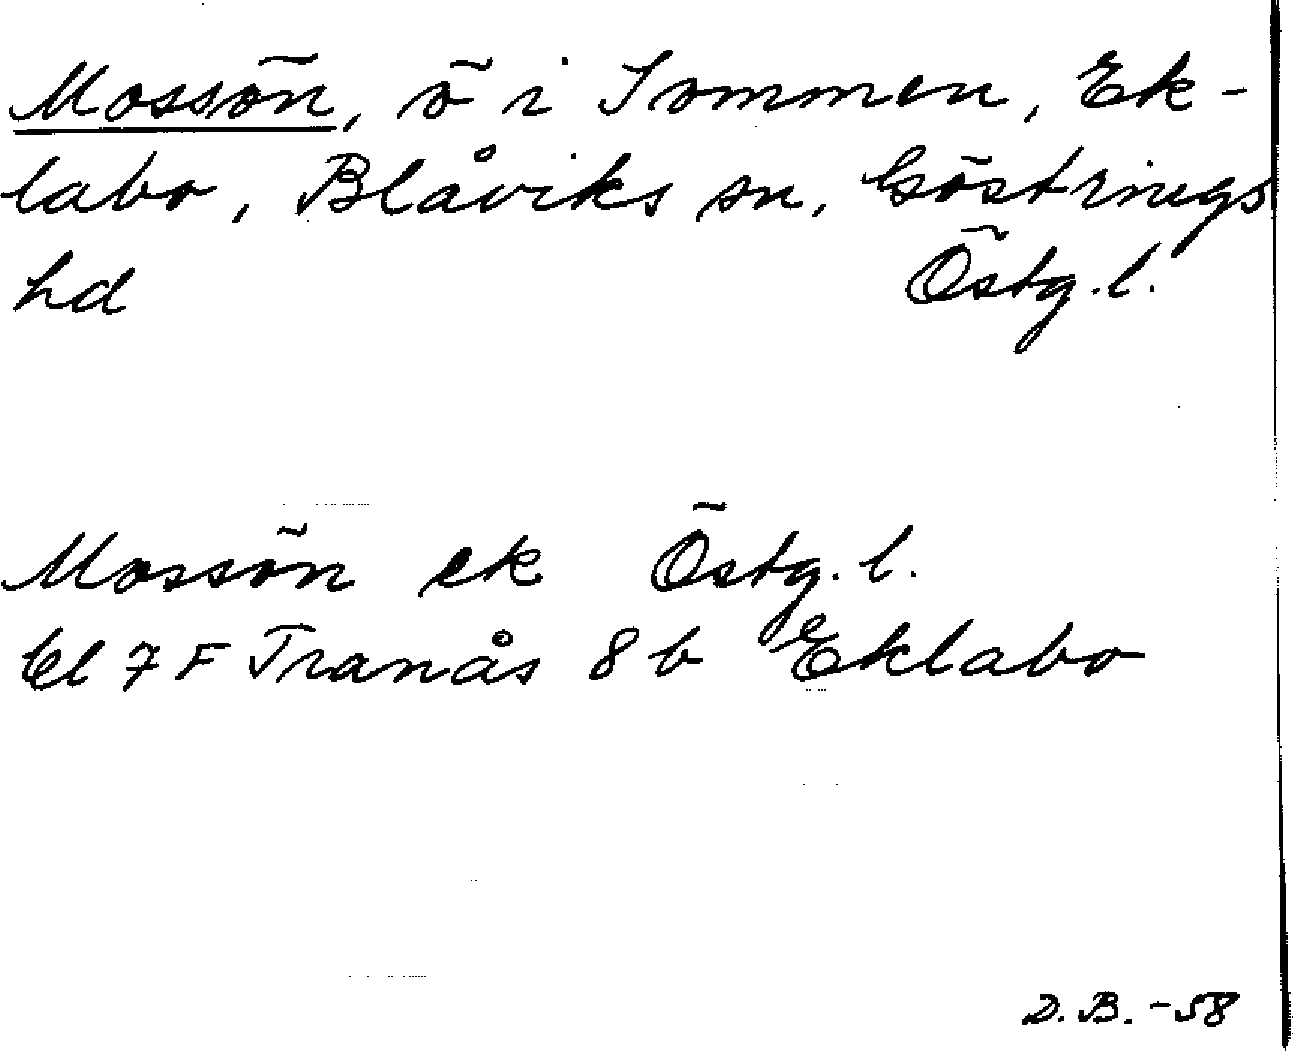 Mossön, ö i Sommen, Ek-
labo, Blåviks sn, Göstrings
hd Östg.l.
Mossön ek Östg.l.
Bl 7 F Tranås 8 b Eklabo
D.B. -58